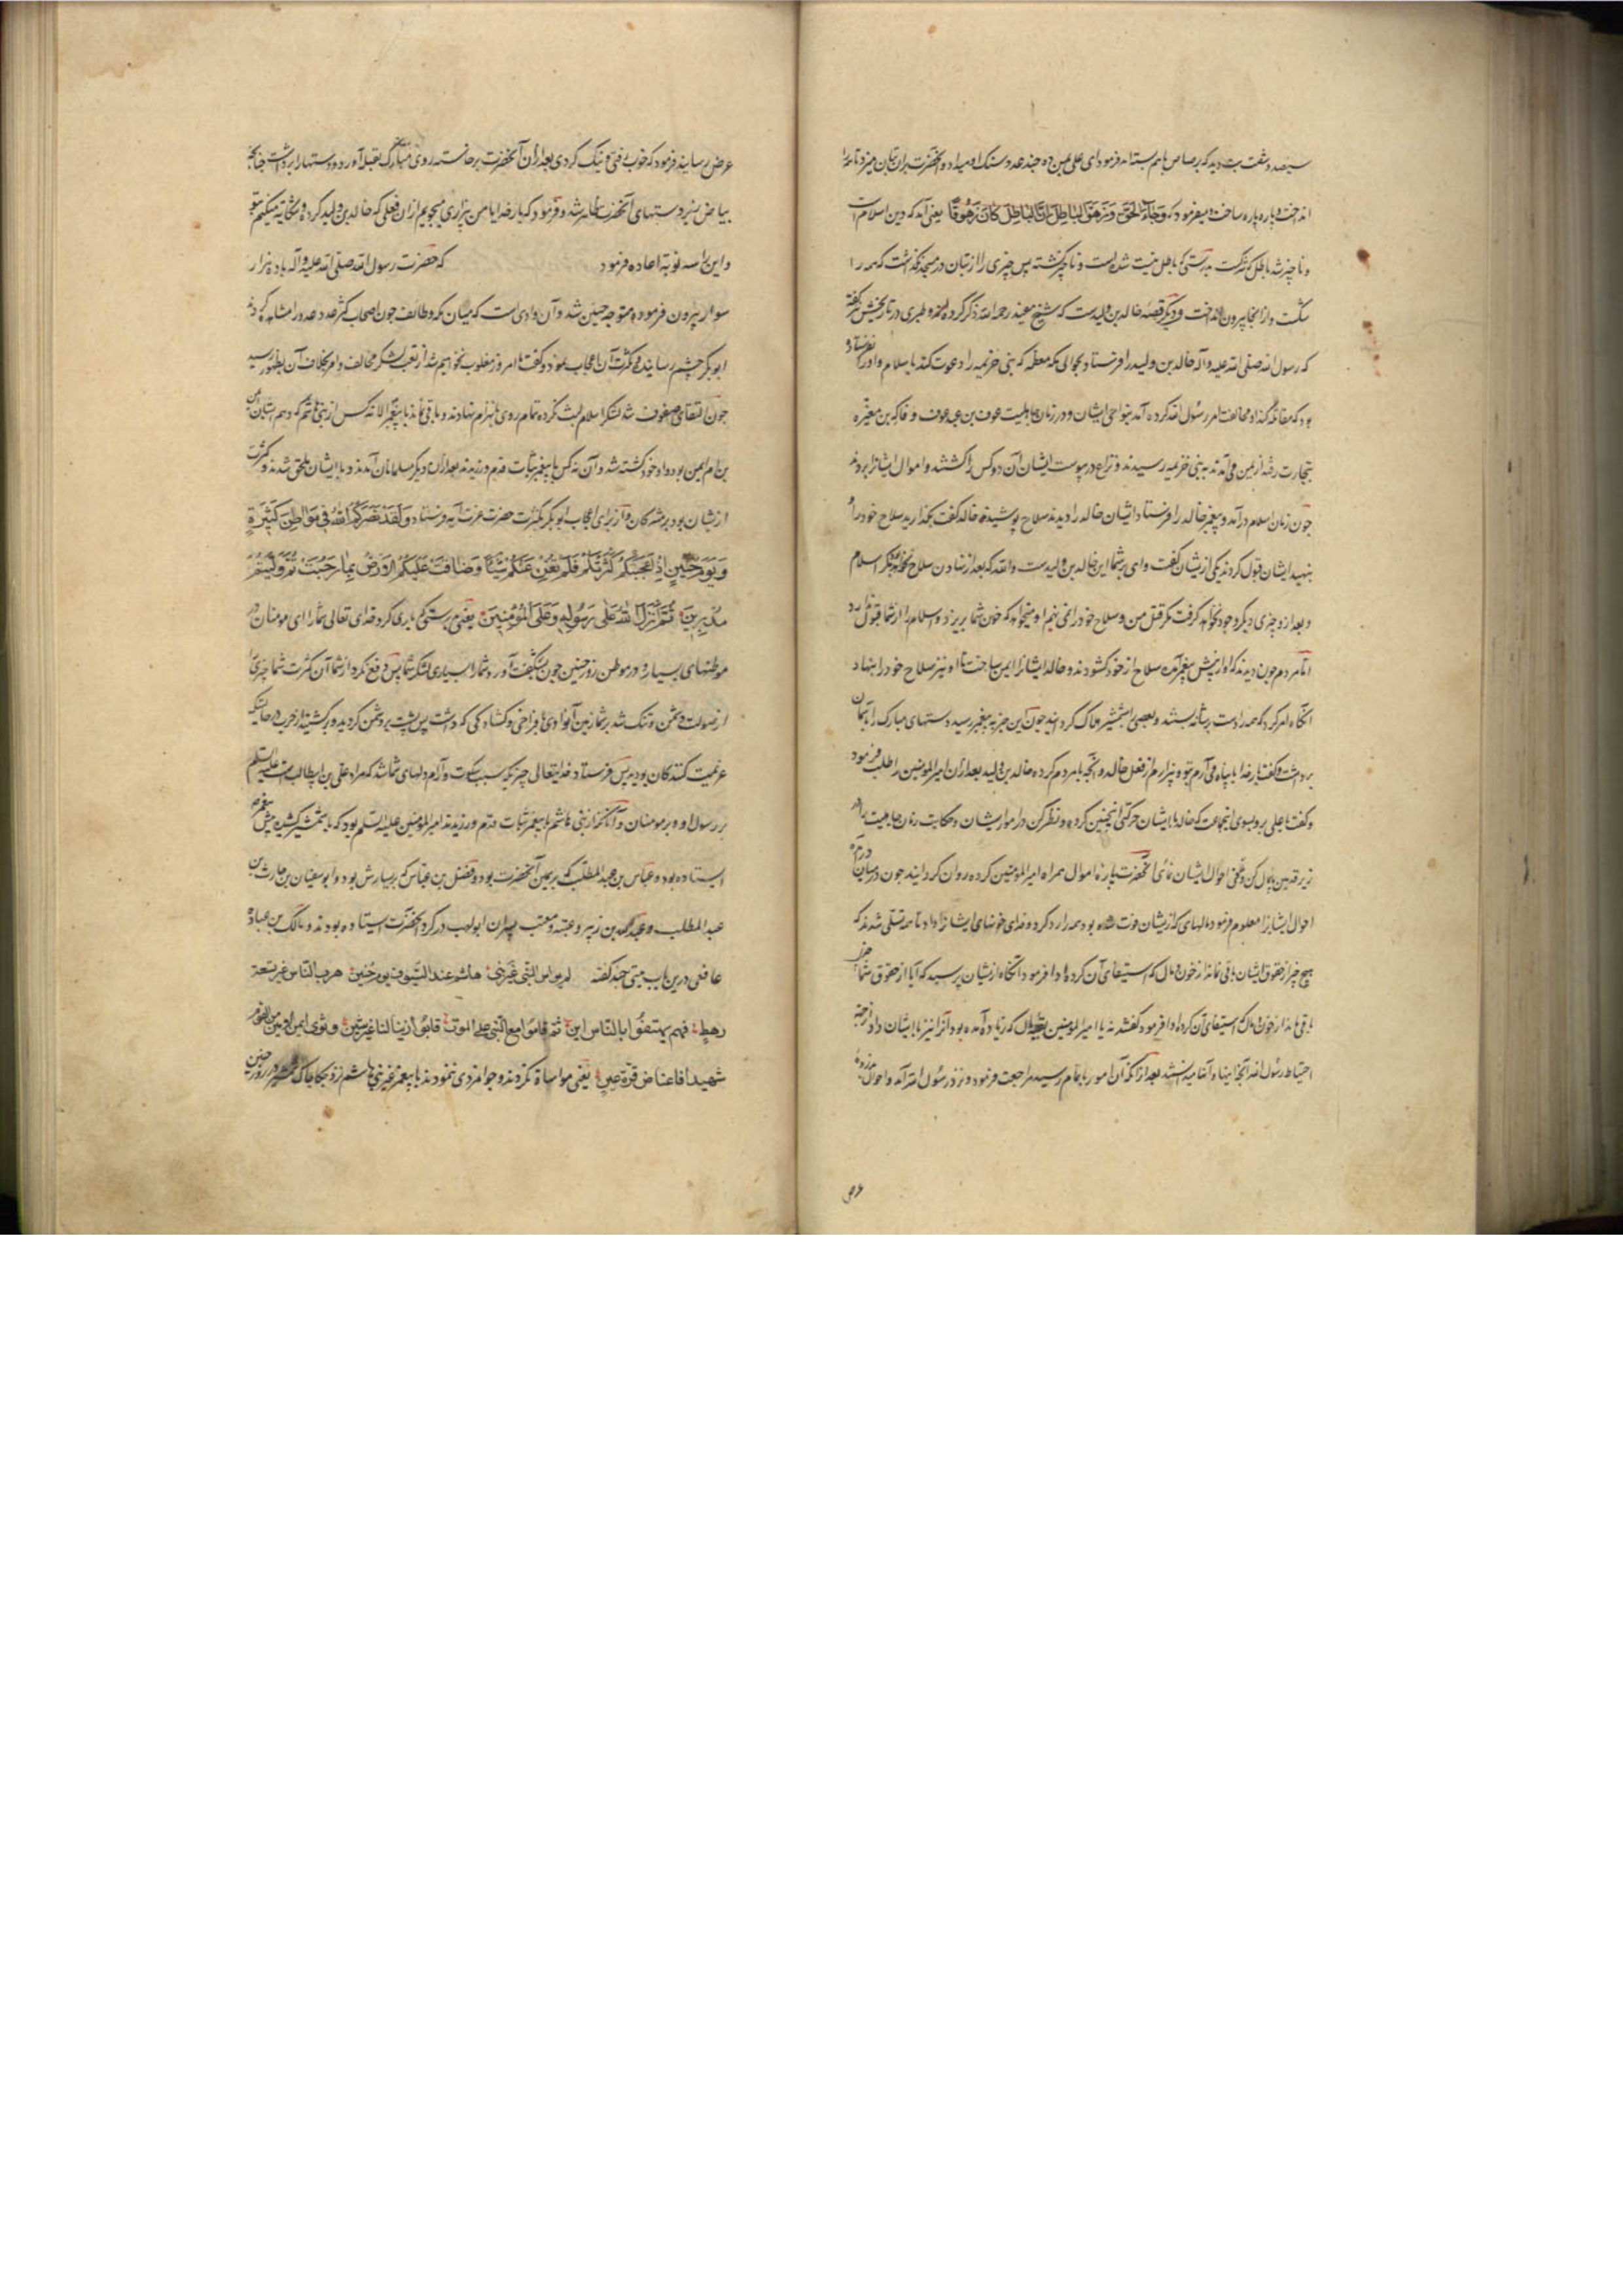 سیصد و شصت بت دید که برصاص با هم بسته اند فرمود ای علی بمن ده چند عدد سنک او میداد و آنحضرت بران بتان میزد تا همه را
انداخت و پاره پاره ساخت و میفرمود که وَجَاءَ الْحَقُّ وَزَهَقَ الْبَاطِلُ اِنَّ الْبَاطِلَ کَانَ زَهُوقًا یعنی آمد که دین اسلام است
و ناچیز شد باطل که شرکست بدرستی که باطل نیست شده است و ناچیز کشته پس چیزی را از بتان در مسجد نکذاشت که همه را
شکست و از انجا بیرون انداخت و دیکر قصه خالد بن ولید است که شیخ مفید رحمه الله ذکر کرده و طبری در تاریخش کفته
که رسول الله صلی الله علیه و آله خالد بن ولید را فرستاد بحوالی مکه معظمه که بنی خزیمه را دعوت کند باسلام و او را نفرستاده
بود که مقاتله کند او مخالفت امر رسول الله کرده آمد بنواحی ایشان و در زمان جاهلیت عوف بن عبد عوف و فاکه بن مغیره
بتجارت رفته از یمن می آمدند به بنی خزیمه رسیدند و نزاع در پیوست ایشان آن دو کس را کشتند و اموال ایشانرا بردند
چون زمان اسلام درآمد و پیغمبر خالد را فرستاد ایشان خالد را دیدند سلاح پوشیدند خالد کفت بکذارید سلاح خود را و
بنهید ایشان قبول کردند یکی از یشان کفت وای بر شما این خالد بن ولید است والله که بعد از نهادن سلاح نخواهد بود مکر اسلام
و بعد از و چیزی دیکر وجود نخواهد کرفت مکر قتل من و سلاح خود را نمی نهم او میخواهد که خون شما بریزد و اسلام را از شما قبول ندارد
اما مردم چون دیدند که او از پیش پیغمبر آمده سلاح از خود کشودند و خالد ایشانرا ایمن ساخت تا او نیز سلاح خود را بنهاد
آنکاه امر کرد که همه را دست بر شانه بستند و بعضی را بشمشیر هلاک کردانید چون این خبر به پیغمبر رسید دستهای مبارک را بآسمان
برداشت و کفت بار خدایا پناه می آرم بتو و بیزارم از فعل خالد و آنچه با مردم کرده خالد بن ولید بعد از ان امیر المومنین را طلب فرمود
و کفت یا علی برو بسوی این جماعت که خالد با ایشان حرکتی اینچنین کرده و نظر کن در امور ایشان و حکایت زمان جاهلیت را در
زیر قدمین پامال کن و تلافی احوال ایشان نمای آنحضرت پاره اموال همراه امیر المومنین کرده روان کردانید چون در میان درآمد
احوال ایشانرا معلوم فرمود مالهای که از یشان فوت شده بود همه را رد کرد و فدای خونهای ایشانرا داد تا همه تسلی شدند که
هیچ چیز از حقوق ایشان باقی نماند از خون و مال که استیفای آن کرده ادا فرمود آنکاه از یشان پرسید که آیا از حقوق شما چیزی
باقی مانده از خون و مال که استیفای آن کرده ادا فرمود کفتند نه یا امیر المومنین بقیه مال که زیاده آمده بود آنرا نیز با ایشان داد از جهة
احتیاط رسول الله آنجا بنهاد بعد از انکه آن امور باتمام رسید مراجعت فرمود و نزد رسول الله آمد و احوال
عرض
عرض رسانید فرمود که خوب رفتی و نیک کردی بعد از ان آنحضرت برخاسته روی مبارک بقبله آورد و دستها را برداشت چنانچه
بیاض زیر دستهای آنحضرت ظاهر شد و فرمود که بار خدایا من بیزاری میجویم از ان فعلی که خالد بن ولید کرده و شکایة میکنم بتو
و این را سه نوبت اعاده فرمود که حضرت رسول الله صلی الله علیه و آله با ده هزار
سوار بیرون فرمود و متوجه حنین شد و آن وادی است که میان مکه و طائف چون اصحاب کثرت عدد را مشاهده کردند
ابوبکر چشم رسانید و کثرت آن اعجاب نمود و کفت ما امروز مغلوب نخواهیم شد از لشکر مخالف و امر بخلاف آن بظهور رسید
چون التقای صفوف شد لشکر اسلام لبث نکرده تمام روی بانهزام نهادند و باقی نماند با پیغمبر الا نه کس از بنی هاشم که دهم ایشان ایمن
بن ام ایمن بود و او خود کشته شد و آن نه کس با پیغمبر ثبات قدم ورزیدند بعد از ان دیکر مسلمانان آمدند و با ایشان ملحق شدند و کثرت
از یشان بود بر مشرکان و از برای اعجاب ابوبکر بکثرت حضرت عزت آیه فرستاد وَلَقَدْ نَصَرَکُمُ اللهُ فِی مَوَاطِنَ کَثِیرَةٍ
وَیَوْمَ حُنَیْنٍ اِذْ اَعْجَبَتْکُمْ کَثْرَتُکُمْ فَلَمْ تُغْنِ عَنْکُمْ شَیْئًا وَضَاقَتْ عَلَیْکُمُ الْاَرْضُ بِمَا رَحُبَتْ ثُمَّ وَلَّیْتُمْ
مُدْبِرِینَ ثُمَّ اَنْزَلَ اللهُ عَلَی رَسُولِهِ وَعَلَی الْمُؤْمِنِینَ یعنی بدرستی که یاری کرد خدای تعالی شما را ای مومنان در
موطنهای بسیار و در موطن روز حنین چون بشکفت آورد شما را بسیاری لشکر شما پس دفع نکرد از شما آن کثرت شما چیزی را
از صولت دشمن و تنک شد بر شما زمین آنوادی با فراخی و کشادکی که داشت پس پشت بر دشمن کردید و برکشتید از حرب در حالتیکه
عزیمت کنندکان بودید پس فرستاد خدایتعالی چیزیکه سبب سکون و آرام دلهای شما شد که مراد علی بن ابیطالب است علیه السلم
بر رسول او و بر مومنان و آنانکه از بنی هاشم با پیغمبر ثبات قدم ورزیدند امیر المومنین علیه السلم بود که با شمشیر کشیده پیش پیغمبر
ایستاده بود و عباس بن عبد المطلب که بر یمین آنحضرت بود و فضل بن عباس که بر یسارش بود و ابوسفیان بن حارث بن
عبد المطلب و عبد الله بن زبیر و عتبه و معتب پسران ابولهب در کرد آنحضرت ایستاده بودند و مالک بن عباده
غافقی درین باب بیتی چند کفته لم یواس النبی غیر بنی هاشم عند السیوف یوم حنین هرب الناس غیر تسعة
رهط فهم یهتفون بالناس این ثم قاموا مع النبی علی الموت فابوا زینا لنا غیر شین و ثوی ایمن الامین من القوم
شهیدا فاعتاض قرة عین یعنی مواساة نکردند و جوانمردی ننمودند با پیغمبر غیر بنی هاشم نزد چکاچاک شمشیر در روز حنین